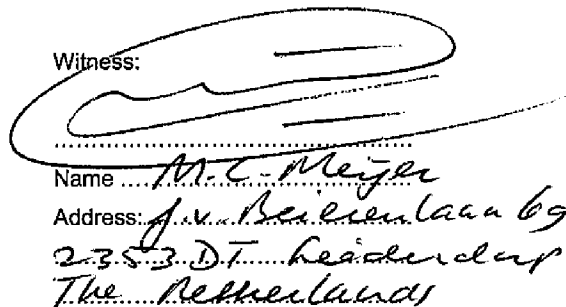 Witness:
Name M.C. Meijer
Address: J.v. Beierenlaan 69
2353 DT Leiderdorp
The Netherlands